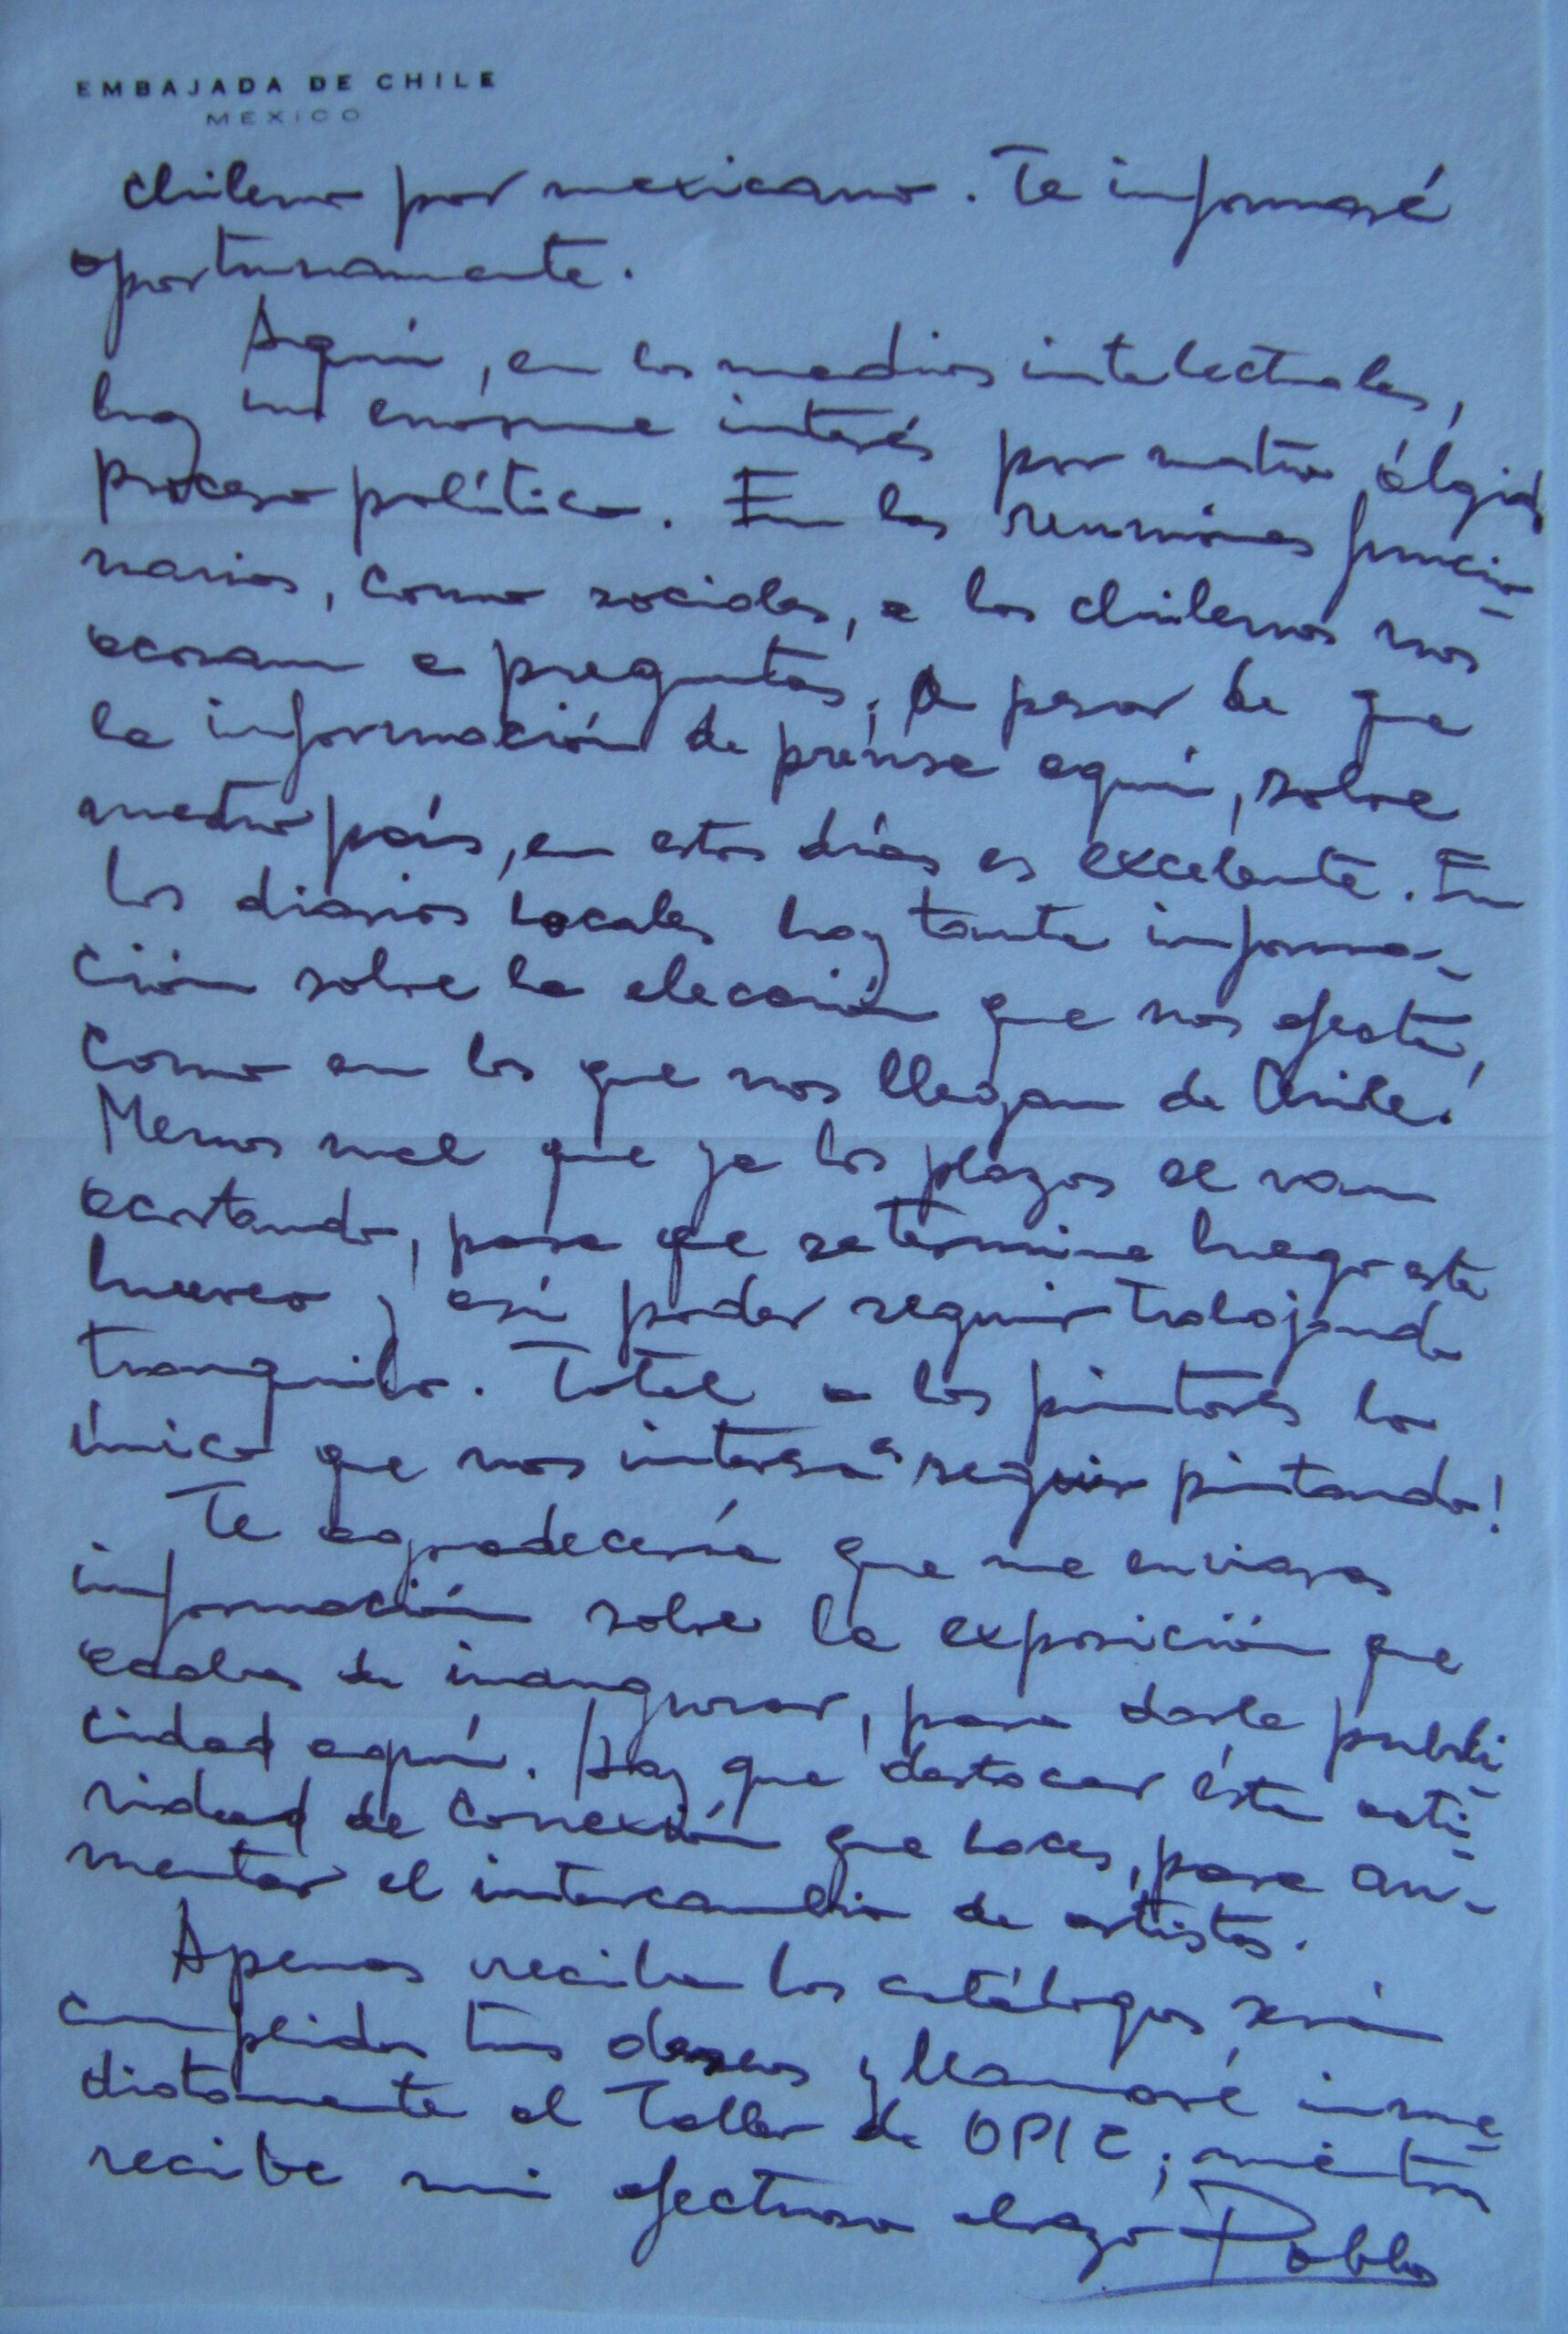 EMBAJADA DE CHILE
MEXICO
chileno por mexicano. Te informaré
oportunamente.
Aquí, en los medios intelectuales,
hay un enorme interés por nuestro álgido
proceso político. En las reuniones funcio-
narias, como sociales, a los chilenos nos
acosan a preguntas; a pesar de que
la información de prensa aquí, sobre
nuestro país, en estos días es excelente. En
los diarios locales hay tanta informa-
ción sobre la elección que nos afecta,
como en los que nos llegan de Chile.
Menos mal que ya los plazos se van
acortando, para que se termine luego este
hueveo y así poder seguir trabajando
tranquilo. Total a los pintores lo
único que nos interesa es seguir pintando!
Te agradecería que me enviaras
información sobre la exposición que
acabas de inaugurar, para darle publi-
cidad aquí. Hay que destacar ésta acti-
vidad de conexión que haces, para au-
mentar el intercambio de artistas.
Apenas reciba los catálogos serán
cumplidos tus deseos y llamaré inme-
diatamente al Taller de OPIC; mientras
recibe mi afectuoso abrazo Pablo